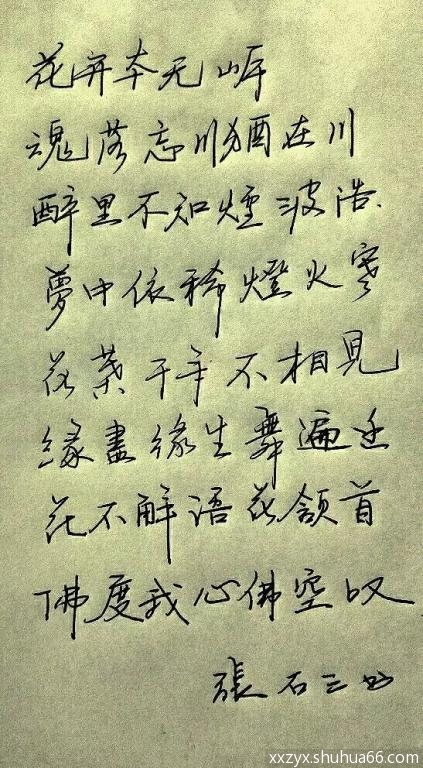 花开本无岸
魂落忘川猶在川
醉里不知煙波浩
夢中依稀燈火寒
花葉千年不相見
緣盡緣生舞遍迁
花不解语花颔首
佛度我心佛空叹
張石三
xxzyx.shuhua66.com